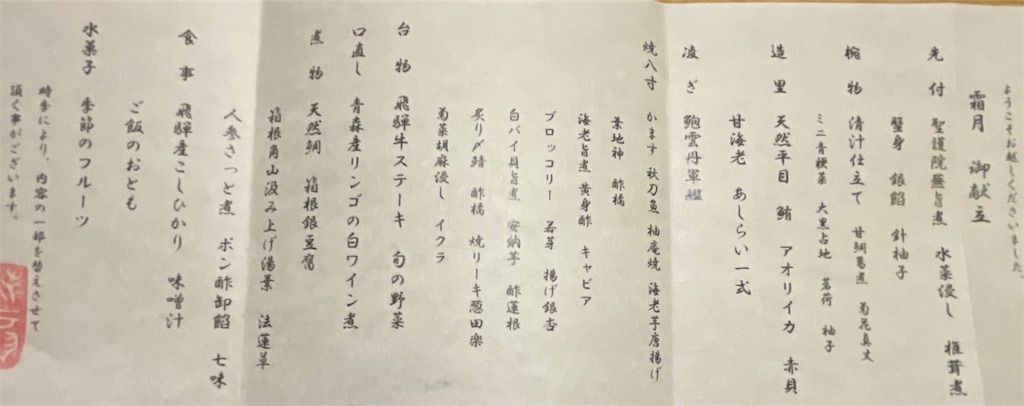 ようこそお越しくださいました。
霜月 御献立
先付 聖護院蕪旨煮 水菜浸し 椎茸煮
蟹身 銀餡 針柚子
椀物 清汁仕立て 甘鯛葛煮 菊花真丈
ミニ青梗菜 大黒占地 茗荷 柚子
造里 天然平目 鮪 アオリイカ 赤貝
甘海老 あしらい一式
凌ぎ 鮑雲丹軍艦
焼八寸 かます 秋刀魚 柚庵焼 海老芋唐揚げ
葉地神 酢橘
海老旨煮 黄身酢 キャビア
ブロッコリー 若芽 揚げ銀杏
白バイ貝旨煮 安納芋 酢蓮根
炙り〆鯖 酢橘 焼リーキ葱田楽
菊菜胡麻浸し イクラ
台物 飛騨牛ステーキ 旬の野菜
口直し 青森産リンゴの白ワイン煮
煮物 天然鯛 箱根銀豆腐
箱根角山汲み上げ湯葉 法蓮草
人参さっと煮 ポン酢卸餡 七味
食事 飛騨産こしひかり 味噌汁
ご飯のおとも
水菓子 季節のフルーツ
時季により、内容の一部を替えさせて
頂く事がございます。